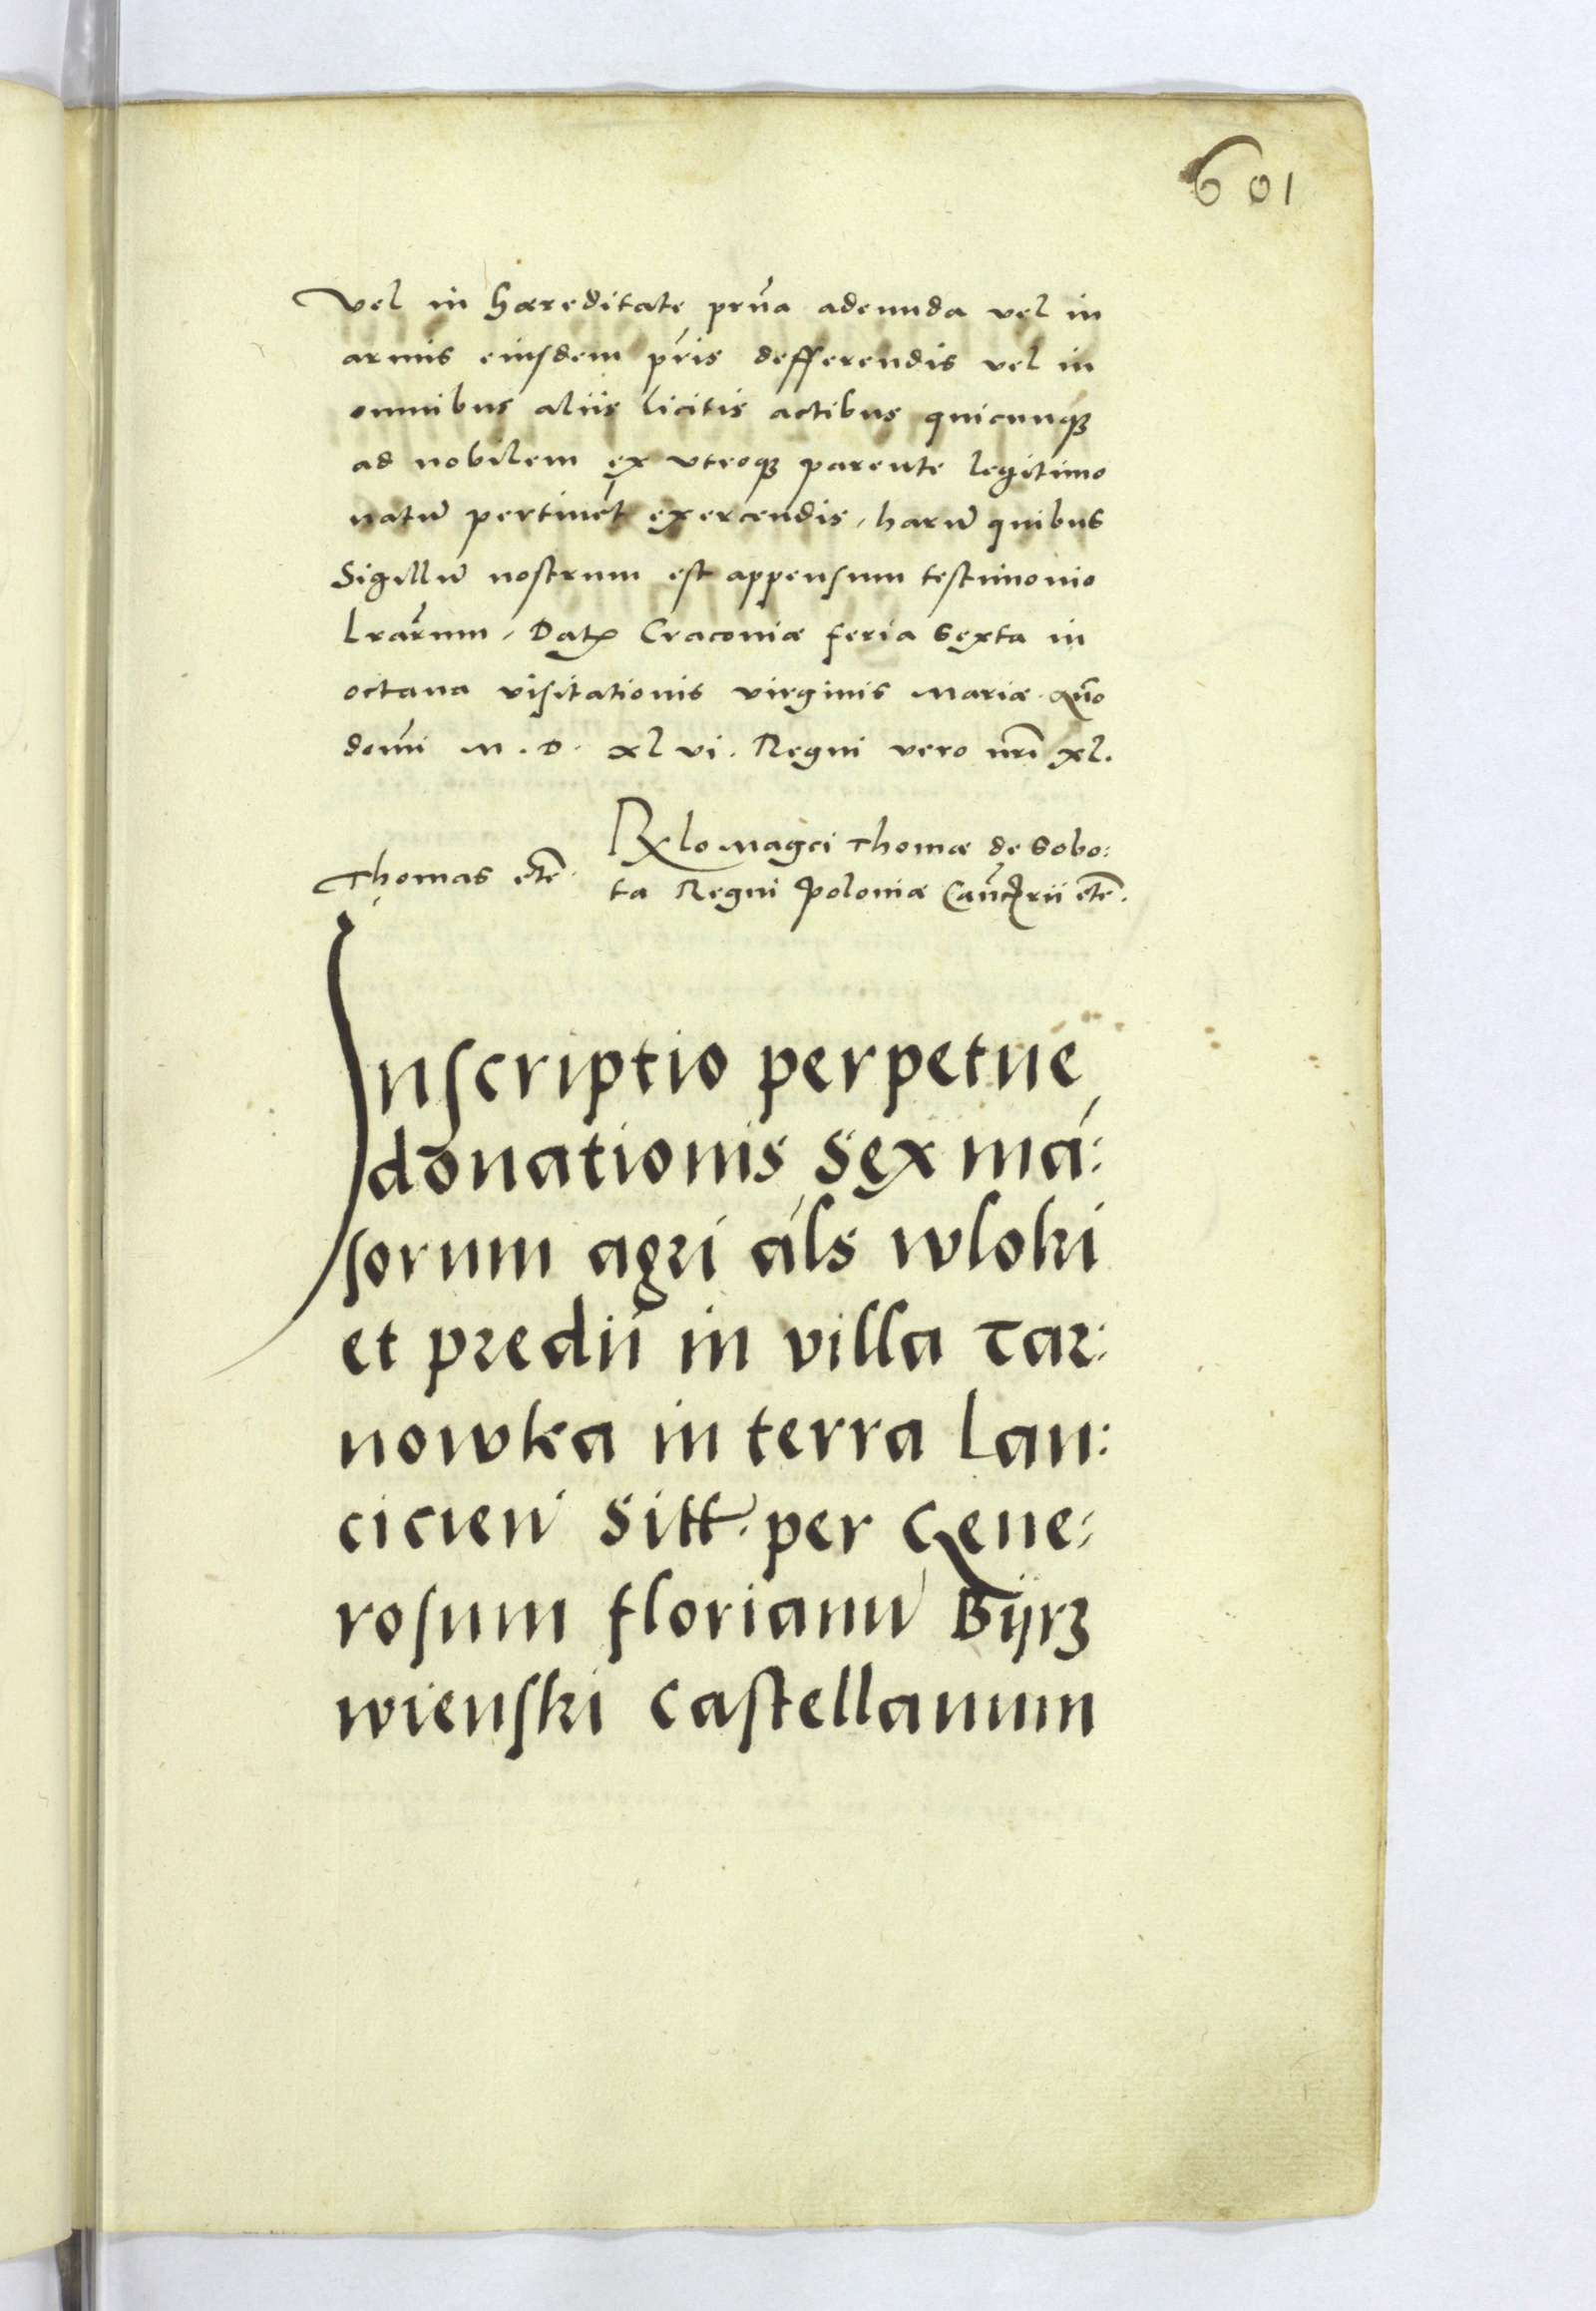 601
Vel in hæreditate prña adeunda vel in
armis eiusdem pr̃is defferendis vel in
omnibus aliis licitis actibus quicunq̃
ad nobilem ex vtroq̃ parente legitimo
natũ pertinẽt exercendis, harũ quibus
Sigillũ nostrum est appensum testimonio
lrar̃um, Datꝭ Cracoviæ feria Sexta in
octava visitationis virginis Mariæ Añno
domĩ M. D. xl vi. Regni vero nrĩ xl.
Thomas etc̃.
Rlo Magci Thomæ de Sobo:
ta Regni Poloniæ Canc̃rii etc̃.
Inscriptio perpetue
donationis Sex mã:
sorum agri als̃ wloki
et predii in villa Tar:
nowka in terra Lan:
cicieñ Sitt. per Gene:
rosum florianũ Bijrz
wienski Castellanum